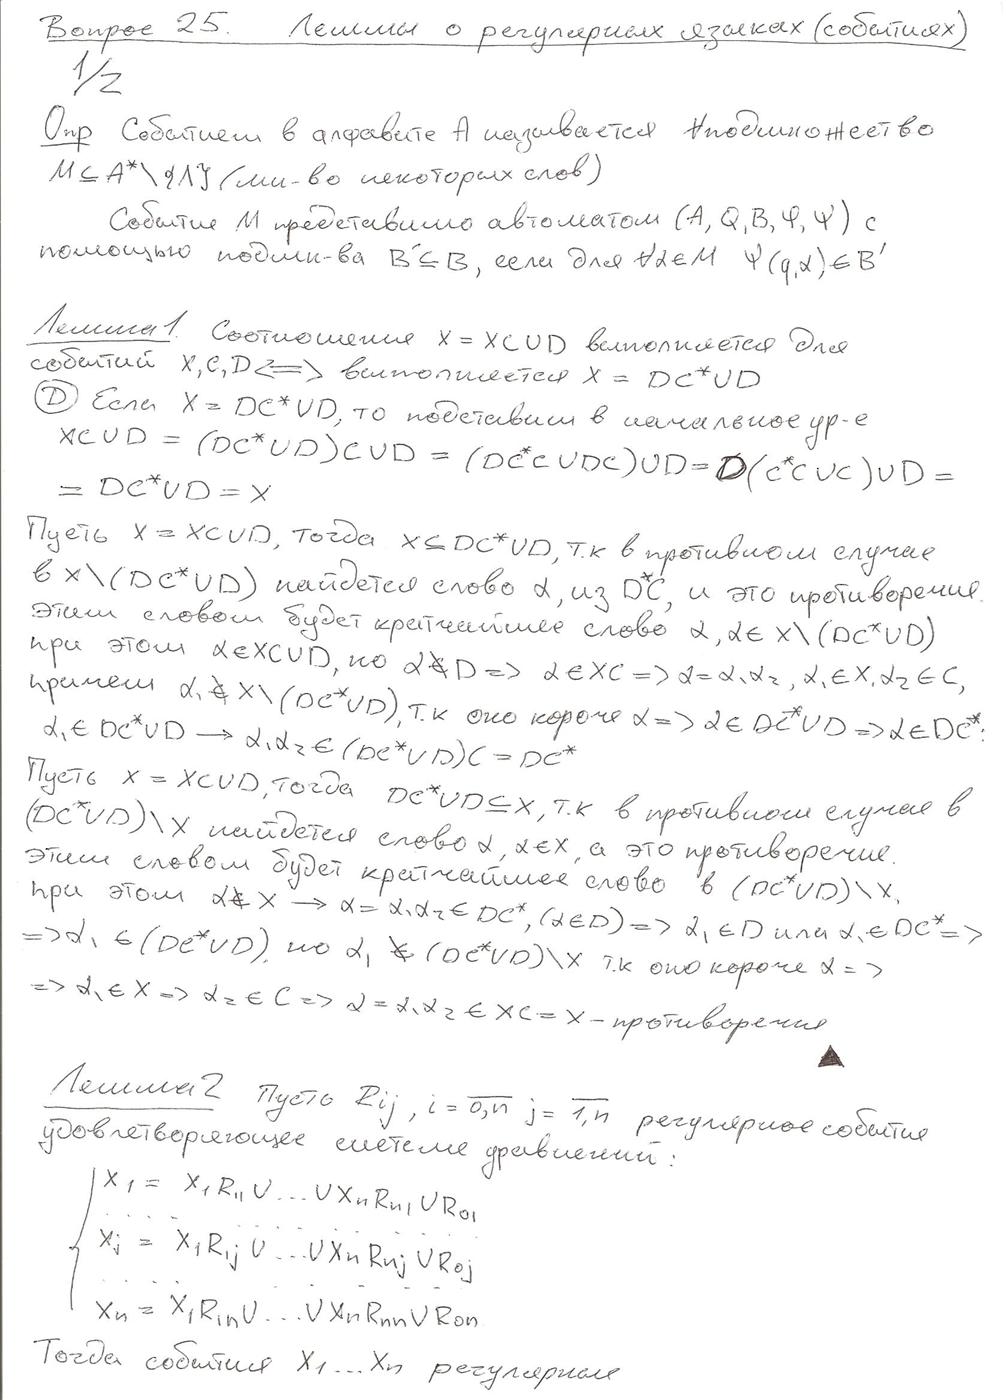 Вопрос 25. Леммы о регулярных языках (событиях)
1/2
Опр Событием в алфавите A называется ∀подмножество
M⊆A*\{Λ} (мн-во некоторых слов)
Событие M представимо автоматом (A, Q, B, φ, ψ) с
помощью подмн-ва B'⊆B, если для ∀α∈M ψ(q,α)∈B'
Лемма1. Соотношение X = XC∪D выполняется для
событий X,C,D <=> выполняется X = DC*∪D
(D) Если X = DC*∪D, то подставим в начальное ур-е
XC∪D = (DC*∪D)C∪D = (DC*C∪DC)∪D = D(C*C∪C)∪D =
= DC*∪D = X
Пусть X = XC∪D, тогда X⊆DC*∪D, т.к в противном случае
в X\(DC*∪D) найдется слово α, из D*C, и это противорение.
Этим словом будет кратчайшее слово α, α∈X\(DC*∪D)
при этом α∈XC∪D, но α∉D => α∈XC => α=α₁α₂, α₁∈X, α₂∈C,
причем α₁∉X\(DC*∪D), т.к оно короче α => α∈DC*∪D => α∈DC*:
α₁∈DC*∪D → α₁α₂∈(DC*∪D)C = DC*
Пусть X = XC∪D, тогда DC*∪D⊆X, т.к в противном случае в
(DC*∪D)\X найдется слово α, α∈X, а это противоречие.
Этим словом будет кратчайшее слово в (DC*∪D)\X,
при этом α∉X → α=α₁α₂∈DC*, (α∈D) => α₁∈D или α₁∈DC* =>
=> α₁∈(DC*∪D), но α₁∉(DC*∪D)\X т.к оно короче α =>
=> α₁∈X => α₂∈C => α=α₁α₂∈XC=X – противоречие
▲
Лемма2 Пусть Rij, i = 0,n j = 1,n регулярное событие
удовлетворяющее системе уравнений:
X₁ = X₁R₁₁∪...∪XnRn₁∪R₀₁
. . . . . . . . .
Xj = X₁R₁j∪...∪XnRnj∪R₀j
. . . . . . . . .
Xn = X₁R₁n∪...∪XnRnn∪R₀n
Тогда события X₁...Xn регулярные